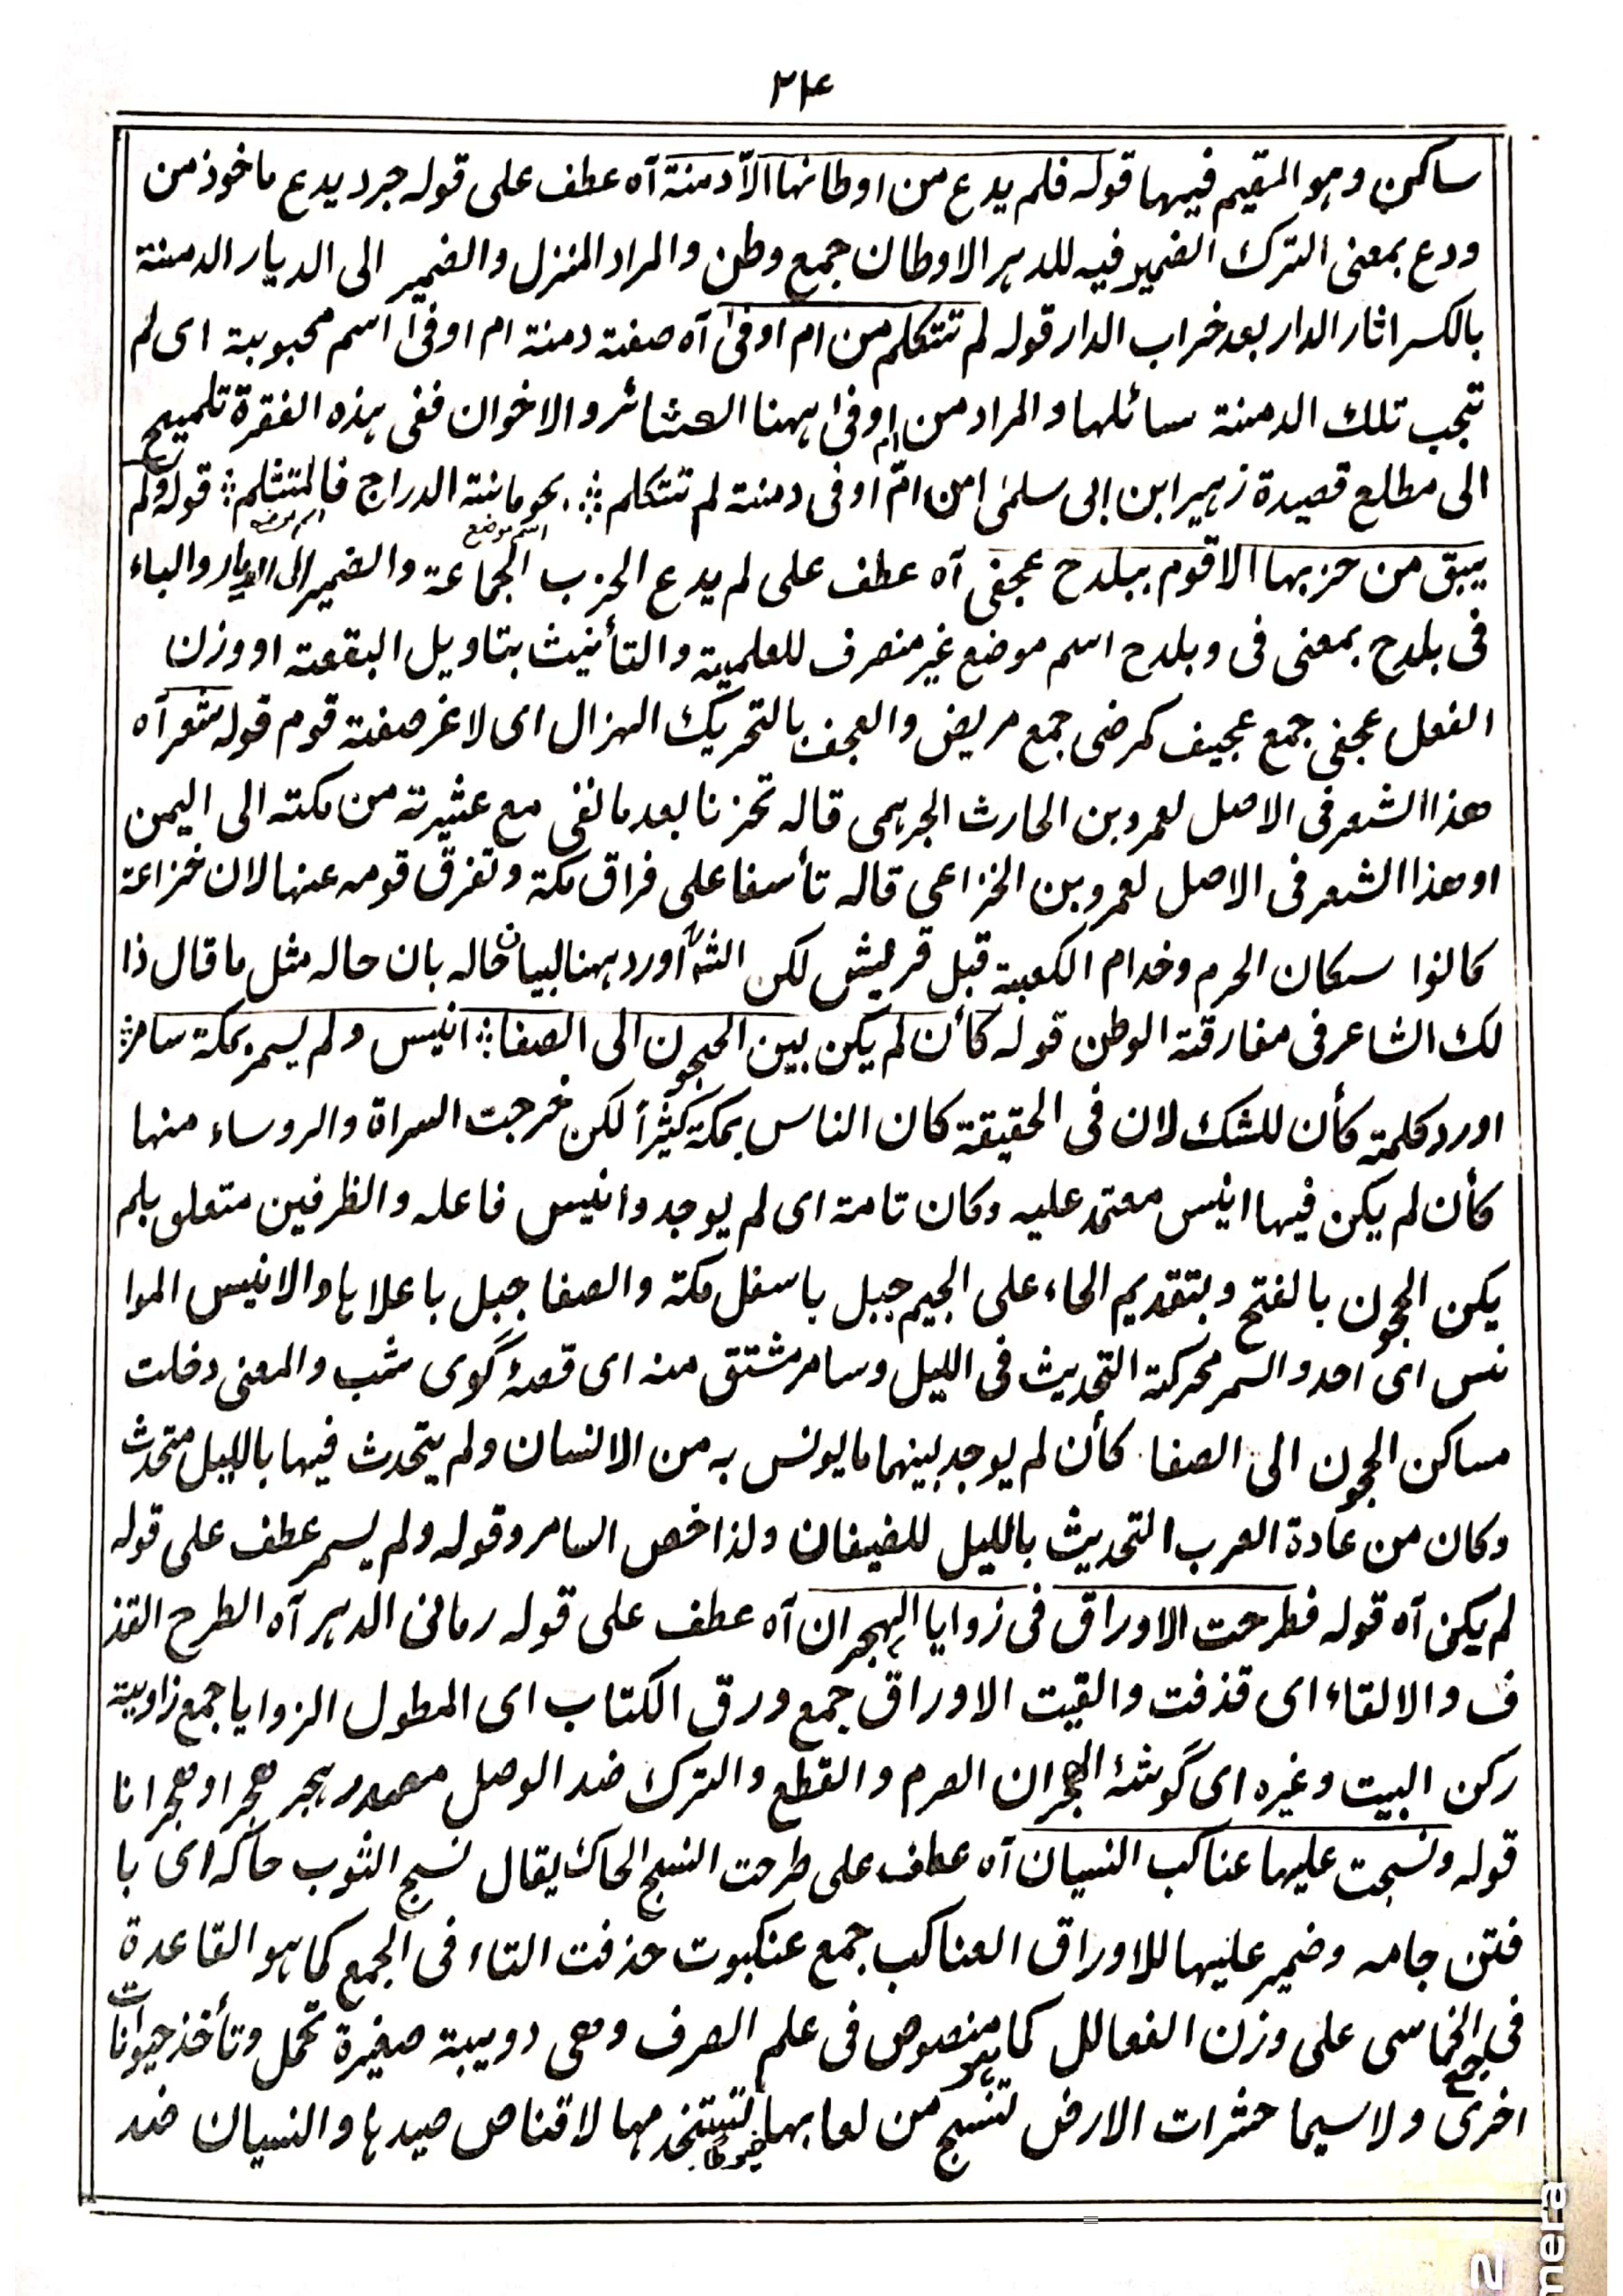 ٢٣٤
ساكن وهو المقيم فيها قوله فلم يدع من اوطانها الاّ دمنة آه عطف على قوله جرد يدع ماخوذ من
ودع بمعنى الترك الضمير فيه للدهر الاوطان جمع وطن والمراد المنزل والضمير الى الديار الدمنة
بالكسر اثار الدار بعد خراب الدار قوله لم تتكلم من ام اوفىٰ آه صفة دمنة ام اوفىٰ اسم محبوبة اى لم
تجب تلك الدمنة سائلها والمراد من ام اوفىٰ ههنا العشائر والاخوان ففى هذه الفقرة تلميح
الى مطلع قصيدة زهير ابن ابى سلمىٰ امن امّ اوفى دمنة لم تتكلم ؞ بحومانة الدراج فالمتثلم ؞ قوله ولم
اسم موضع اسم موضع
يبق من حزبها الا قوم ببلدح عجفى آه عطف على لم يدع الحزب الجماعة والضمير الى الديار والباء
فى بلدح بمعنى فى وبلدح اسم موضع غير منصرف للعلمية والتأنيث بتاويل البقعة او وزن
الفعل عجفى جمع عجيف كمرضى جمع مريض والعجف بالتحريك الهزال اى لاغر صفة قوم قوله شعر آه
هذا الشعر فى الاصل لعمرو بن الحارث الجرهمى قاله تحزنا بعد ما نفى مع عشيرته من مكته الى اليمن
او هذا الشعر فى الاصل لعمرو بن الخزاعى قاله تأسفا على فراق مكة وتفرق قومه عنها لان خزاعة
كانوا سكان الحرم وخدام الكعبة قبل قريش لكن الشه اورد ههنا لبيان حاله بان حاله مثل ما قال ذا
لك الشاعر فى مفارقة الوطن قوله كأن لم يكن بين الحجون الى الصفا ؞ انيس ولم يسمر بمكة سامر ؞
اورد كلمة كأن للشك لان فى الحقيقة كان الناس بمكة كثيراً لكن خرجت السراة والروساء منها
كأن لم يكن فيها انيس معتمد عليه وكان تامة اى لم يوجد وانيس فاعله والظرفين متعلق بلم
يكن الحجون بالفتح وبتقديم الحاء على الجيم جبل باسفل مكة والصفا جبل باعلاها والانيس الموا
نس اى احد والسمر محركة التحديث فى الليل وسامر مشتق منه اى قصۂ گوى شب والمعنى دخلت
مساكن الحجون الى الصفا كأن لم يوجد بينهما ما يونس به من الانسان ولم يتحدث فيها بالليل متحدث
وكان من عادة العرب التحديث بالليل للضيفان ولذا خص السامر وقوله ولم يسمر عطف على قوله
لم يكن آه قوله فطرحت الاوراق فى زوايا الهجران آه عطف على قوله رمانى الدهر آه الطرح القذ
ف والالقاء اى قذفت والقيت الاوراق جمع ورق الكتاب اى المطول الزوايا جمع زاوية
ركن البيت وغيره اى گوشۂ الهجران الصرم والقطع والترك ضد الوصل مصدر هجر هجرا وهجرانا
قوله ونسجت عليها عناكب النسيان آه عطف على طرحت النسج الحاك يقال نسج الثوب حاكه اى با
فتن جامه وضمير عليها للاوراق العناكب جمع عنكبوت حذفت التاء فى الجمع كما هو القاعدة
فى جمع الخماسى على وزن الفعالل كما هو منصوص فى علم الصرف وهى دويبة صغيرة تحمل وتأخذ حيوانات
اخرى ولا سيما حشرات الارض تنسج من لعابها خيوطا تتخذ مها لاقتناص صيدها والنسيان ضد
2
mera